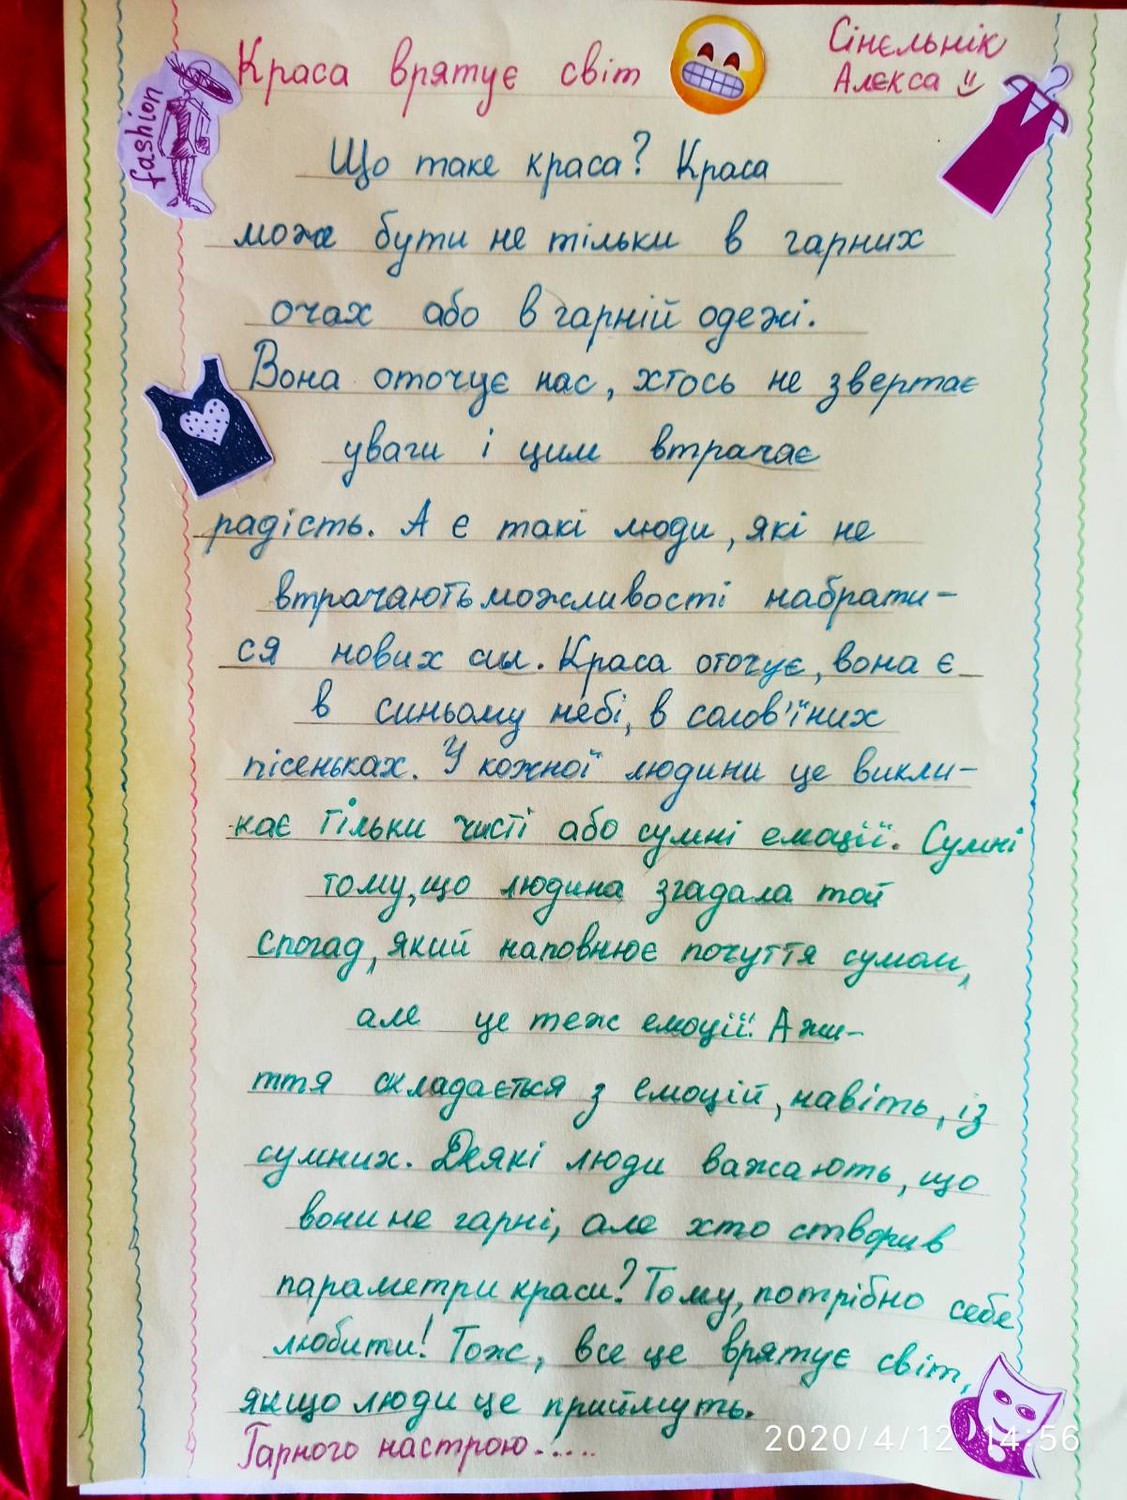 Краса врятує світ
Сінєльнік
Алєкса
fashion
Що таке краса? Краса
може бути не тільки в гарних
очах або в гарній одежі.
Вона оточує нас, хтось не звертає
уваги і цим втрачає
радість. А є такі люди, які не
втрачають можливості набрати-
ся нових сил. Краса оточує, вона є
в синьому небі, в солов'їних
пісеньках. У кожної людини це викли-
кає тільки чисті або сумні емоції. Сумні
тому, що людина згадала той
спогад, який наповнює почуття сумом,
але це теж емоції! А жи-
ття складається з емоцій, навіть, із
сумних. Деякі люди важають, що
вони не гарні, але хто створив
параметри краси? Тому, потрібно себе
любити! Тож, все це врятує світ,
якщо люди це приймуть.
Гарного настрою.....
2020/4/12 14:56